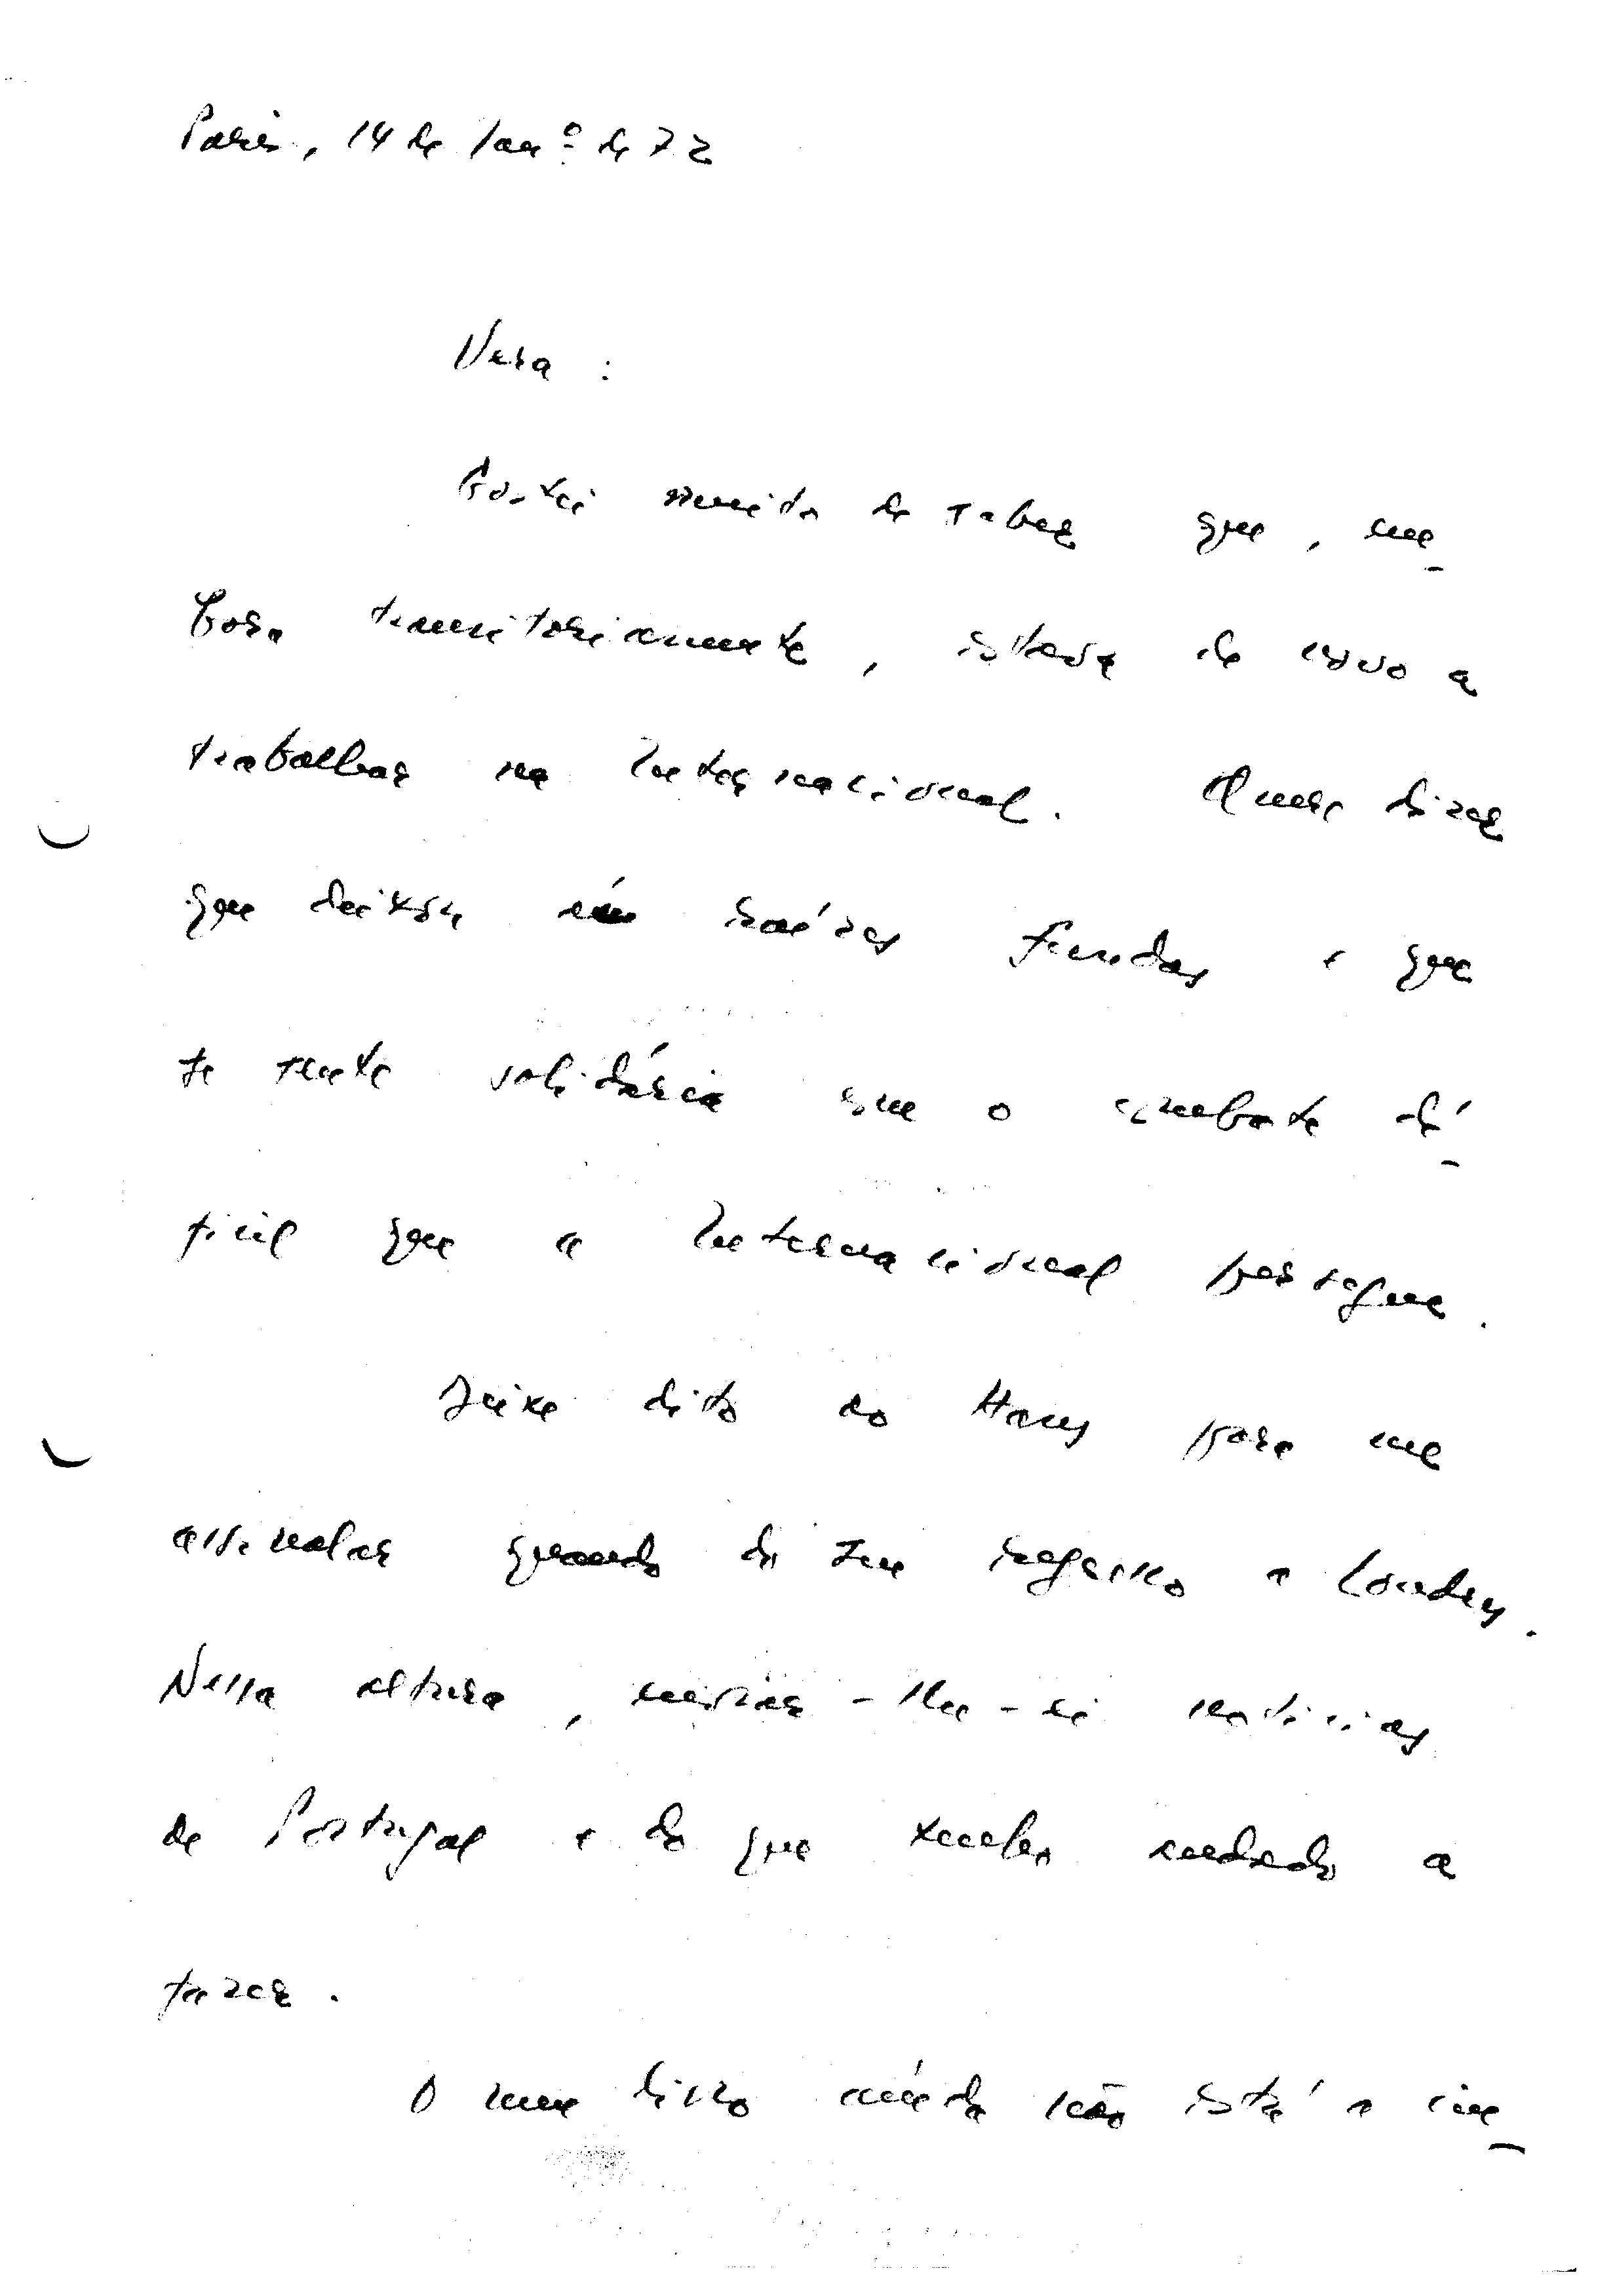 Paris, 14 de Janº de 72
Vera :
Gostei muito de saber que, em-
bora transitoriamente, esteve de novo a
trabalhar na Internacional. Quer dizer
que deixou aí raízes fundas e que
se sente solidária com o combate di-
fícil que a Internacional persegue.
Deixe dito ao Hans para me
assinalar quando do seu regresso a Londres.
Nessa altura, enviar-lhe-ei notícias
de Portugal e do que tenho andado a
fazer.
O meu livro ainda não está a im-